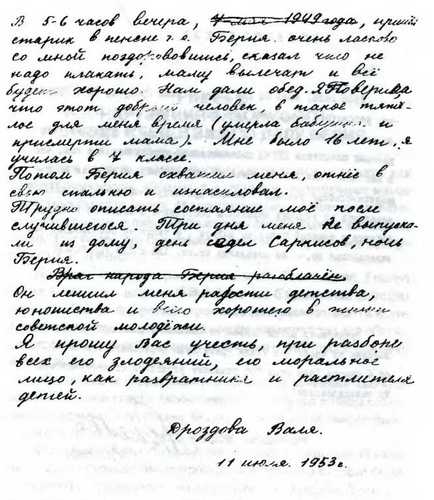 В 5-6 часов вечера, 7 мая 1949 года, пришёл
старик в пенсне т.е. Берия. очень ласково
со мной поздорововшись, сказал что не
надо плакать, маму вылечат и всё
будет хорошо. Нам дали обед. Я поверила
что этот добрый человек, в такое тяжё-
лое для меня время (умерла бабушка и
присмерти мама). Мне было 16 лет, я
училась в 7 классе.
Потом Берия схватил меня, отнёс в
свою спальню и изнасиловал.
Трудно описать состояние моё после
случившегося. Три дня меня не выпуска-
ли из дому, день сидел Саркисов, ночь
Берия.
Враг народа Берия разоблачён.
Он лишил меня радости детства,
юношества и всего хорошего в жизни
советской молодёжи.
Я прошу Вас учесть, при разборе
всех его злодеяний, его моральное
лицо, как развратника и растлителя
детей.
Дроздова Валя.
11 июля 1953 г.